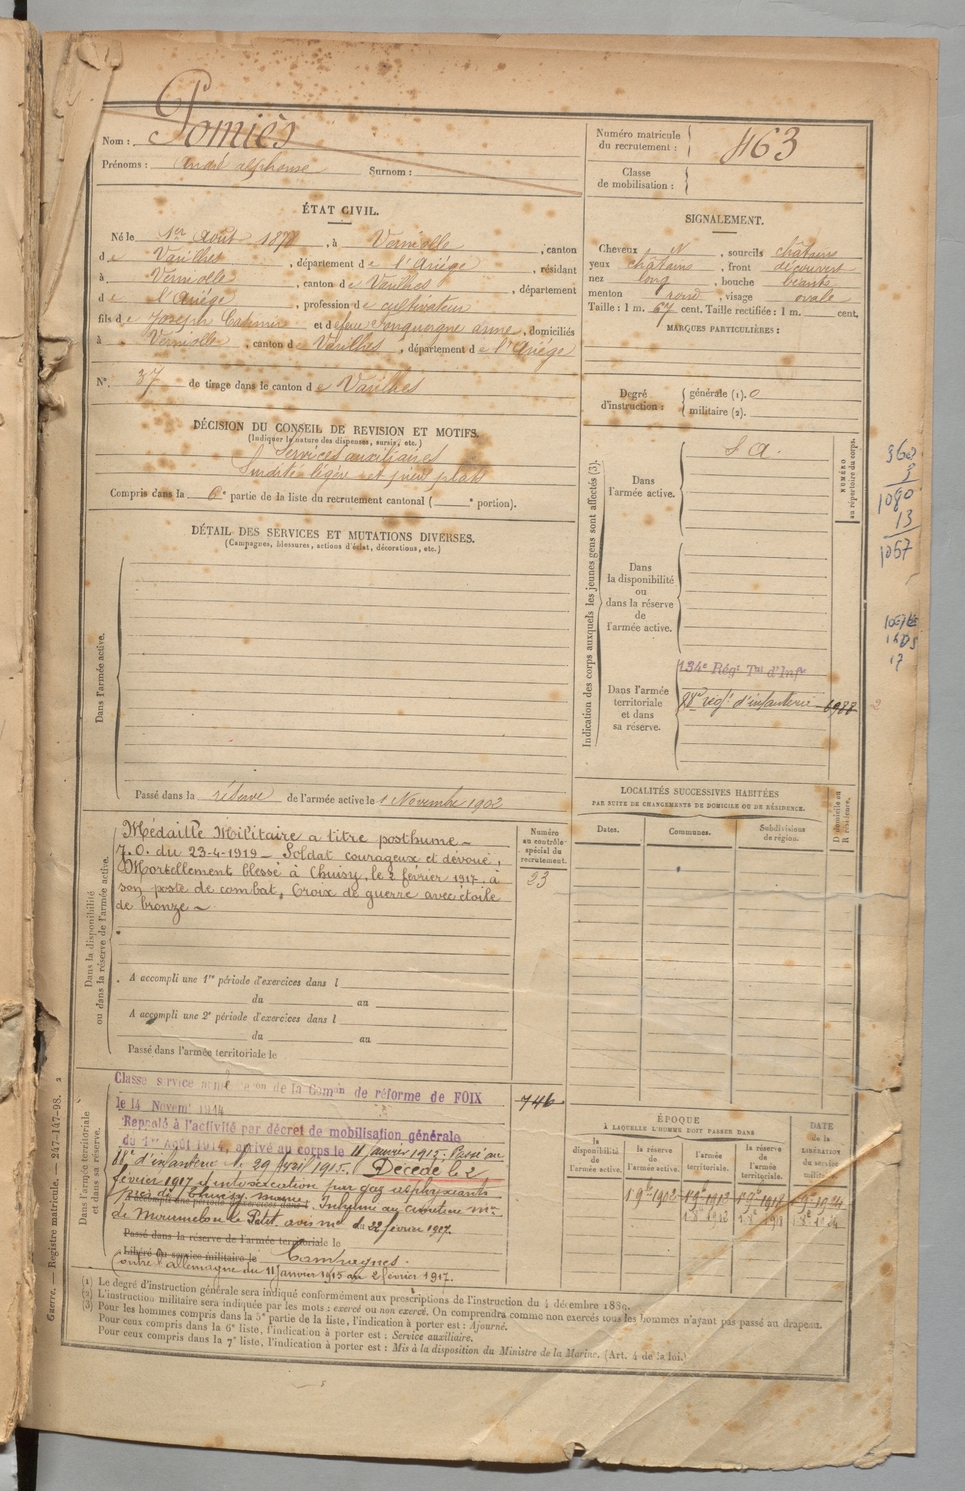 Nom : Pomiès
Prénoms : André alphonse Surnom :
Numéro matricule du recrutement : 463
Classe de mobilisation :
ÉTAT CIVIL.
Né le 1er Août 1878, à Verniolle, canton
de Varilhes, département de l'Ariége, résidant
à Verniolle, canton de Varilhes, département
de l'Ariége, profession de cultivateur
fils de Joseph Casimir et de feue anne, domiciliés
à Verniolle, canton de Varilhes, département de l'Ariége
N° 37 de tirage dans le canton de Varilhes
SIGNALEMENT.
Cheveux N, sourcils châtains
yeux châtains, front découvert
nez long, bouche
menton rond, visage ovale
Taille : 1 m. 67 cent. Taille rectifiée : 1 m. cent.
MARQUES PARTICULIÈRES :
Degré d'instruction : générale (1). 0
militaire (2).
DÉCISION DU CONSEIL DE REVISION ET MOTIFS.
(Indiquer la nature des dispenses, sursis, etc.)
Services auxiliaires
Surdité légère et pieds plats
Compris dans la 6e partie de la liste du recrutement cantonal ( e portion).
DÉTAIL DES SERVICES ET MUTATIONS DIVERSES.
(Campagnes, blessures, actions d'éclat, décorations, etc.)
Dans l'armée active.
Passé dans la réserve de l'armée active le 1 Novembre 1902
Indication des corps auxquels les jeunes gens sont affectés (3).
NUMÉRO au répertoire du corps.
Dans l'armée active.
S A.
Dans la disponibilité ou dans la réserve de l'armée active.
Dans l'armée territoriale et dans sa réserve.
134e Régt Tal d'Infie
88e régt d'infanterie 6988
968
1080
13
1067
17
Dans la disponibilité ou dans la réserve de l'armée active.
Médaille Militaire a titre posthume –
J.O. du 23-4-1919 – Soldat courageux et dévoué,
Mortellement blessé à Thuisy, le 2 février 1917, à
son poste de combat, Croix de guerre avec étoile
de bronze –
Numéro au contrôle spécial du recrutement.
23
A accompli une 1re période d'exercices dans l
du au
A accompli une 2e période d'exercices dans l
du au
Passé dans l'armée territoriale le
LOCALITÉS SUCCESSIVES HABITÉES
PAR SUITE DE CHANGEMENTS DE DOMICILE OU DE RÉSIDENCE.
Dates. Communes. Subdivisions de région. D domicile ou R résidence.
Dans l'armée territoriale et dans sa réserve.
Classé service de la Comon de réforme de FOIX
le 14 Novemb 1914
746
Rappelé à l'activité par décret de mobilisation générale
du 1er Août 1914, arrivé au corps le 11 Janvier 1915. Passé au
d'infanterie le 29 1915. Décédé le 2
février 1917 d'intoxication par gaz asphyxiants
près de Thuisy, marne. Inhumé au cimetière mre
de Mourmelon le Petit, avis mel du 22 février 1917.
A accompli une période d'exercices dans l
Passé dans la réserve de l'armée territoriale le
Libéré du service militaire le
Campagnes.
Contre l'allemagne du 11 Janvier 1915 au 2 février 1917.
ÉPOQUE
À LAQUELLE L'HOMME DOIT PASSER DANS
la disponibilité de l'armée active. la réserve de l'armée active. l'armée territoriale. la réserve de l'armée territoriale.
DATE de la LIBÉRATION du service militaire.
1 9bre 1902
(1) Le degré d'instruction générale sera indiqué conformément aux prescriptions de l'instruction du 4 décembre 1889.
(2) L'instruction militaire sera indiquée par les mots : exercé ou non exercé. On comprendra comme non exercés tous les hommes n'ayant pas passé au drapeau.
(3) Pour les hommes compris dans la 5e partie de la liste, l'indication à porter est : Ajourné.
Pour ceux compris dans la 6e liste, l'indication à porter est : Service auxiliaire.
Pour ceux compris dans la 7e liste, l'indication à porter est : Mis à la disposition du Ministre de la Marine. (Art. 4 de la loi.)
Guerre. — Registre matricule. — 247-147-98. 2